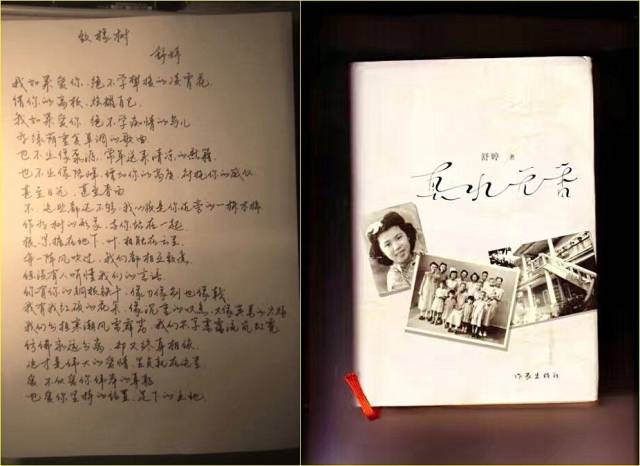 致橡树
舒婷
我如果爱你，绝不学攀援的凌霄花，
借你的高枝，炫耀自己，
我如果爱你，绝不学痴情的鸟儿
为绿荫重复单调的歌曲
也不止像泉源，常年送来清凉的慰藉
也不止像险峰，增加你的高度，衬托你的威仪
甚至日光，甚至春雨
不，这些都还不够，我必须是你近旁的一株木棉
作为树的形象，与你站在一起
根，紧握在地下，叶，相触在云里
每一阵风吹过，我们都相互致意
但没有人听懂我们的言语
你有你的铜枝铁干，像刀像剑也像戟
我有我红硕的花朵，像沉重的叹息，又像英勇的火炬
我们分担寒潮风雷霹雳，我们共享雾霭流岚虹霓
仿佛永远分离，却又终身相依
这才是伟大的爱情，坚贞就在这里
爱，不仅爱你伟岸的身躯
也爱你坚持的位置，足下的土地
舒婷 著
真水无香
作家出版社